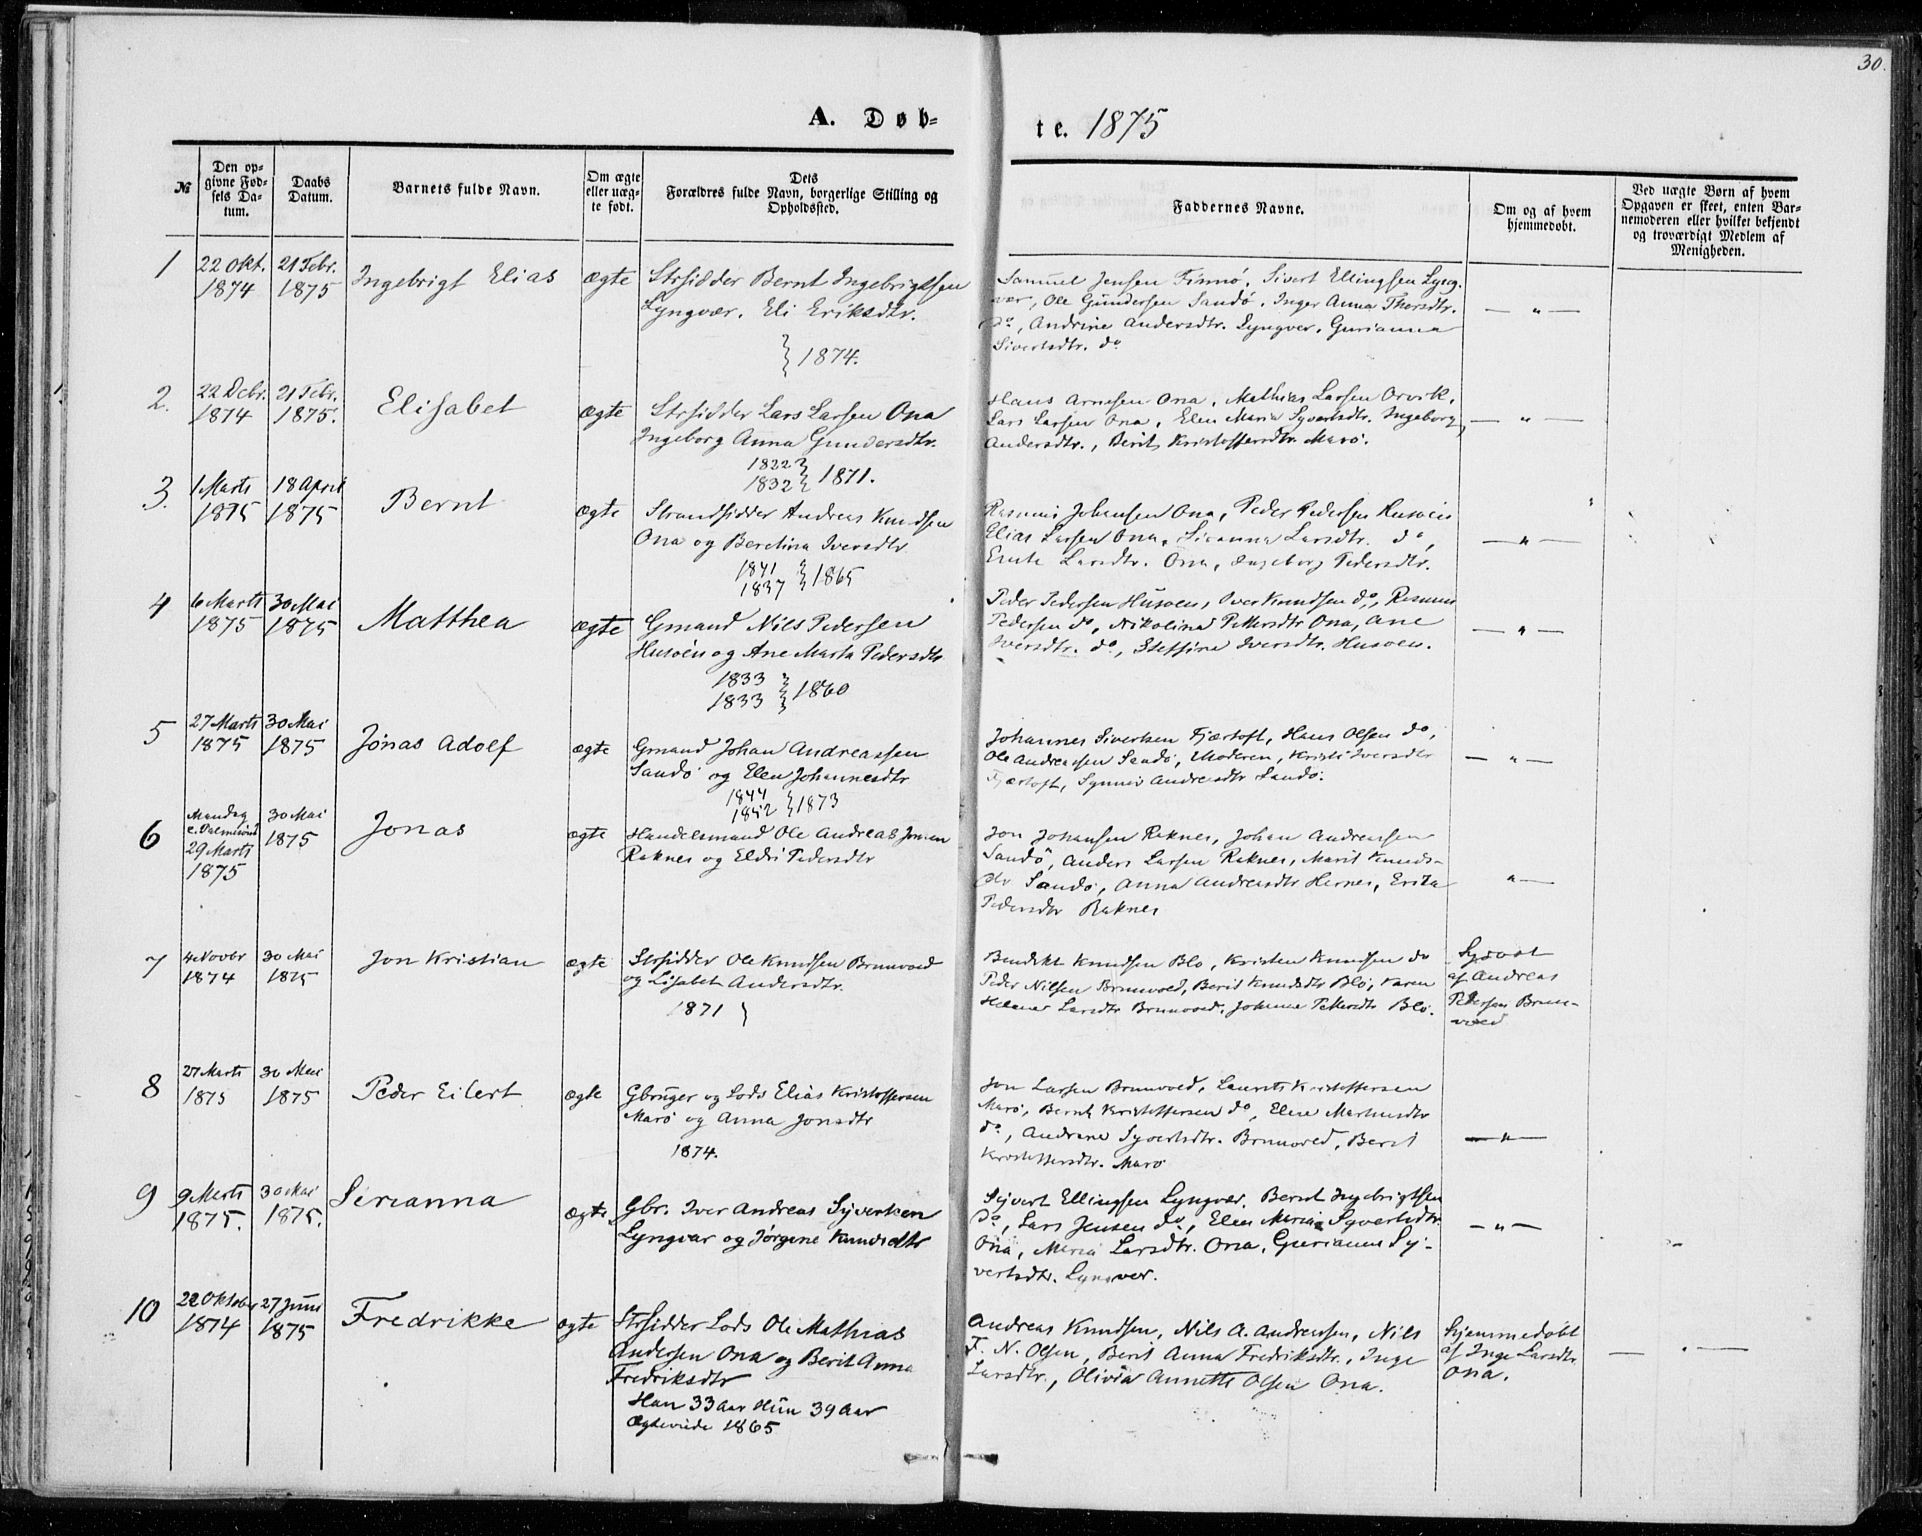 30.
A. Døb-
te. 1875
№
Den op-
givne Fød-
sels Da-
tum.
Daabs
Datum.
Barnets fulde Navn.
Om ægte
eller uæg-
te født.
Dets
Forældres fulde Navn, borgerlige Stilling og
Opholdssted.
Faddernes Navne.
Om og af hvem
hjemmedøbt.
Ved uægte Børn af hvem
Opgaven er skeet, enten Bar-
nemoderen eller hvilket bekjendt
og troværdigt Medlem af
Menigheden.
1
22 Okt.
1874
21 Febr.
1875
Ingebrigt Elias
ægte
Strsidder Bernt Ingebrigtsen
Lyngvær. Eli Eriksdtr.
} 1874.
Samuel Jensen Finnø, Sivert Ellingsen Lyng-
vær, Ole Gundersen Sandø, Inger Anna Thorsdtr.
do, Andrine Andersdtr. Lyngver, Gurianna
Sivertsdtr. do
— " —
2.
22 Debr.
1874
21 Febr.
1875.
Elisabet
ægte
Strsidder Lars Larsen Ona
Ingeborg Anna Gundersdtr.
1822
1832 } 1871.
Hans Arnesen Ona, Mathias Larsen Orvik,
Lars Larsen Ona, Elen Maria Syvertsdtr. Ingeborg
Andersdtr., Berit Kristoffersdtr. Marø.
— " —
3.
1 Marts
1875
18 April
1875
Bernt
ægte
Strandsidder Andreas Knudsen
Ona og Beretina Iversdtr
1841
1837 } 1865
Rasmus Johansen Ona, Peder Pedersen Husøen
Elias Larsen Ona, Larsdtr. do,
Larsdtr. Ona, Ingeborg Pedersdtr.
— " —
4
6 Marts
1875
30 Mai
1875
Matthea
ægte
Gmand Nils Pedersen
Husøen og Ane Marta Pedersdtr
1833
1833 } 1860
Peder Pedersen Husøen, Iver Knudsen do, Rasmus
Pedersen do, Nikolina Pettersdtr Ona, Ane
Iversdtr. do, Steffine Iversdtr. Husøen.
— " —
5
27 Marts
1875
30 Mai
1875
Jonas Adolf
ægte
Gmand Johan Andreassen
Sandø og Elen Johannesdtr
1844
1852 } 1873
Johannes Sivertsen Fjærtoft, Hans Olsen do,
Ole Andreassen Sandø, Moderen, Kristi Iversdtr
Fjærtoft, Synnøv Andreasdtr Sandø.
— " —
6
Mandag
e. Palmesønd
29 Marts
1875
30 Mai
1875
Jonas
ægte
Handelsmand Ole Andreas Jonsen
Raknes og Eldri Pedersdtr
Jon Johansen Raknes, Johan Andreassen
Sandø, Anders Larsen Raknes, Marit Knuds-
dtr Sandø, Anna Andreasdtr Hernes, Erika
Pedersdtr Raknes
" —
7
4 Novbr
1874
30 Mai
1875
Jon Kristian
ægte
Strsidder Ole Knudsen Brunvoed
og Lisabet Andersdtr.
1871 }
Bendikt Knudsen Blø, Kristen Knudsen do
Peder Nilsen Brunvoed, Berit Knudsdtr Blø, Karen
Helene Larsdtr Brunvoed, Johanna Pettersdtr Blø.
af Andreas
Pedersen Brun-
voed
8
27 Marts
1875
30 Mai
1875
Peder Eilert
ægte
Gbruger og Lods Elias Kristoffersen
Marø og Anna Jonsdtr
1874.
Jon Larsen Brunvoed, Laurits Kristoffersen
Marø, Bernt Kristoffersen do, Elene Martinsdtr
do, Andrene Syvertsdtr. Brunvoed, Berit
Kristoffersdtr. Marø
— " —
9
9 Marts
1875.
30 Mai
1875.
Serianna
ægte
Gbr. Iver Andreas Syvertsen
Lyngvær og Jørgene Knudsdtr
Syvert Ellingsen Lyngver, Bernt Ingebrigtsen
do, Lars Jensen do, Elen Maria Syvertsdtr.
Ona, Maria Larsdtr. Ona, Gurianne Sy-
vertsdtr. Lyngver.
— " —
10
22 Oktober
1874
27 Juni
1875
Fredrikke
ægte
Strsidder Lods Ole Mathias
Andersen Ona og Berit Anna
Fredriksdtr
Han 33 Aar Hun 39 Aar
Ægteviede 1865
Andreas Knudsen, Nils A. Andreassen, Nils
F. N. Olsen, Berit Anna Fredriksdtr., Inge
Larsdtr., Olivia Annette Olsen Ona.
Hjemmedøbt
af Inge Larsdtr.
Ona.
— " —